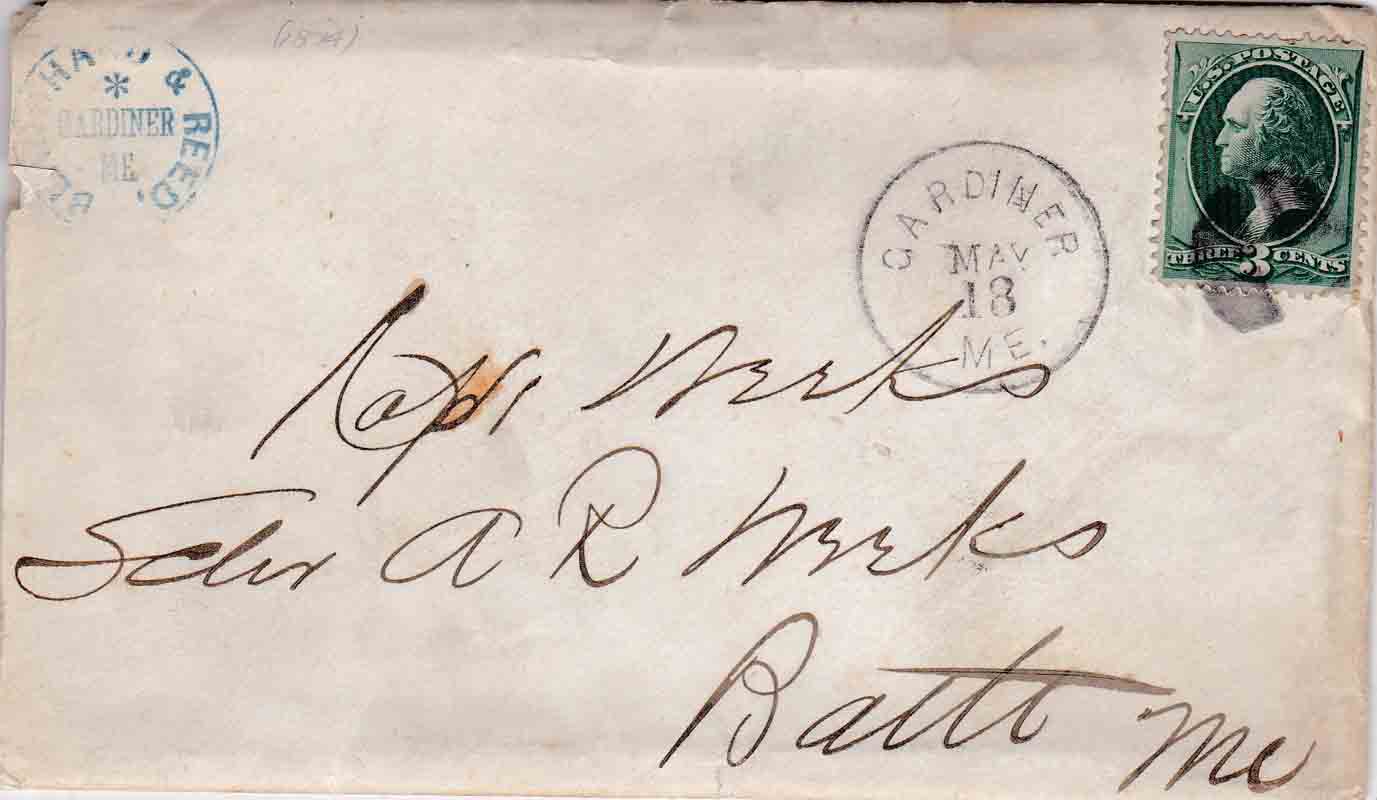 (1874)
& REED,
*
GARDINER
ME
U.S. POSTAGE
THREE 3 CENTS
GARDINER
MAY
18
ME.
Capt Weeks
Schr A R Weeks
Balt Md